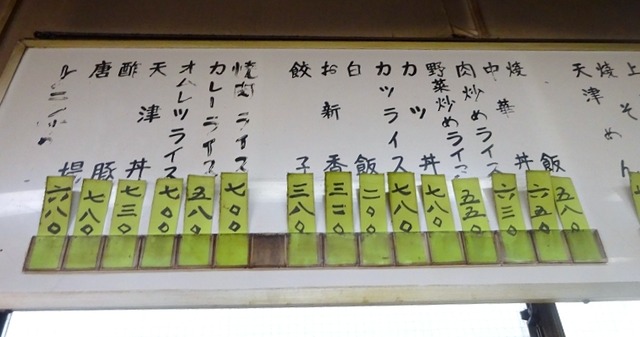 天津
焼飯
五八〇
中華丼
六五〇
肉炒めライス
六三〇
野菜炒めライス
五五〇
カツ丼
七八〇
カツライス
七八〇
白飯
二〇〇
お新香
三二〇
餃子
三八〇
焼肉ライス
七〇〇
カレーライス
五八〇
オムレツライス
七〇〇
天津丼
七三〇
酢豚
七八〇
唐揚
六八〇